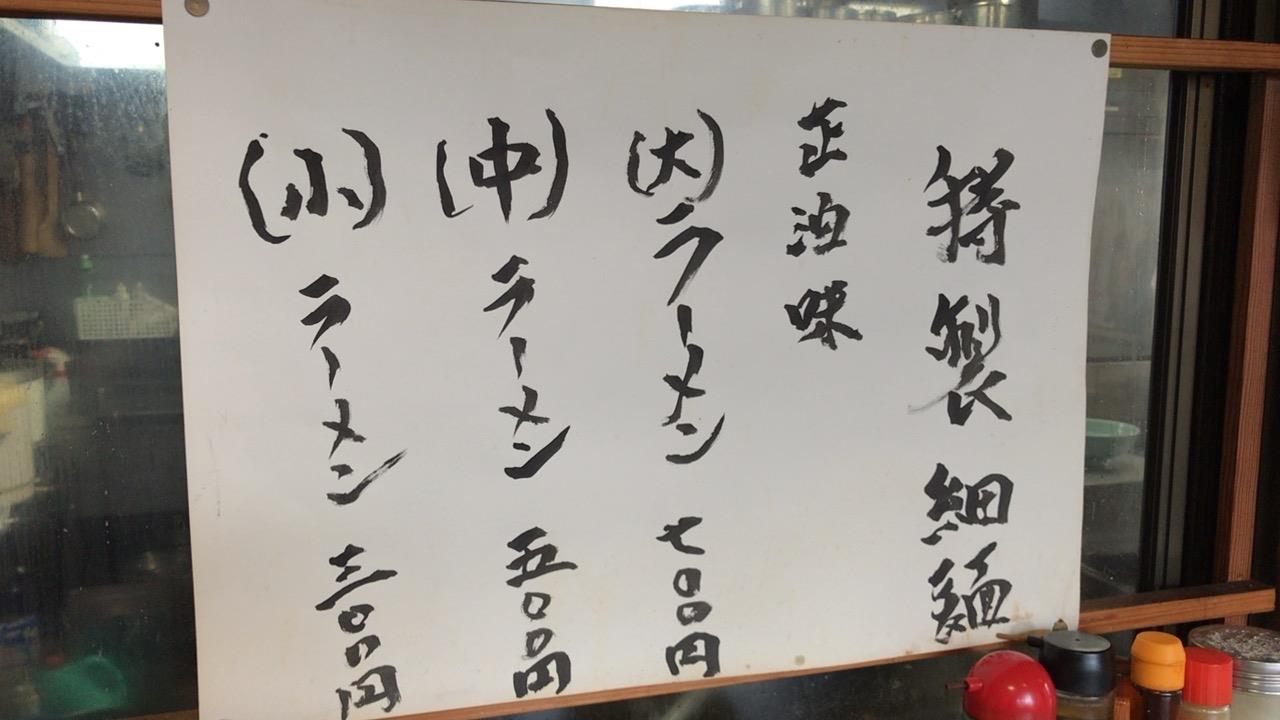 特製細麺
正油味
(大)ラーメン 七〇〇円
(中)ラーメン 五〇〇円
(小)ラーメン 三〇〇円